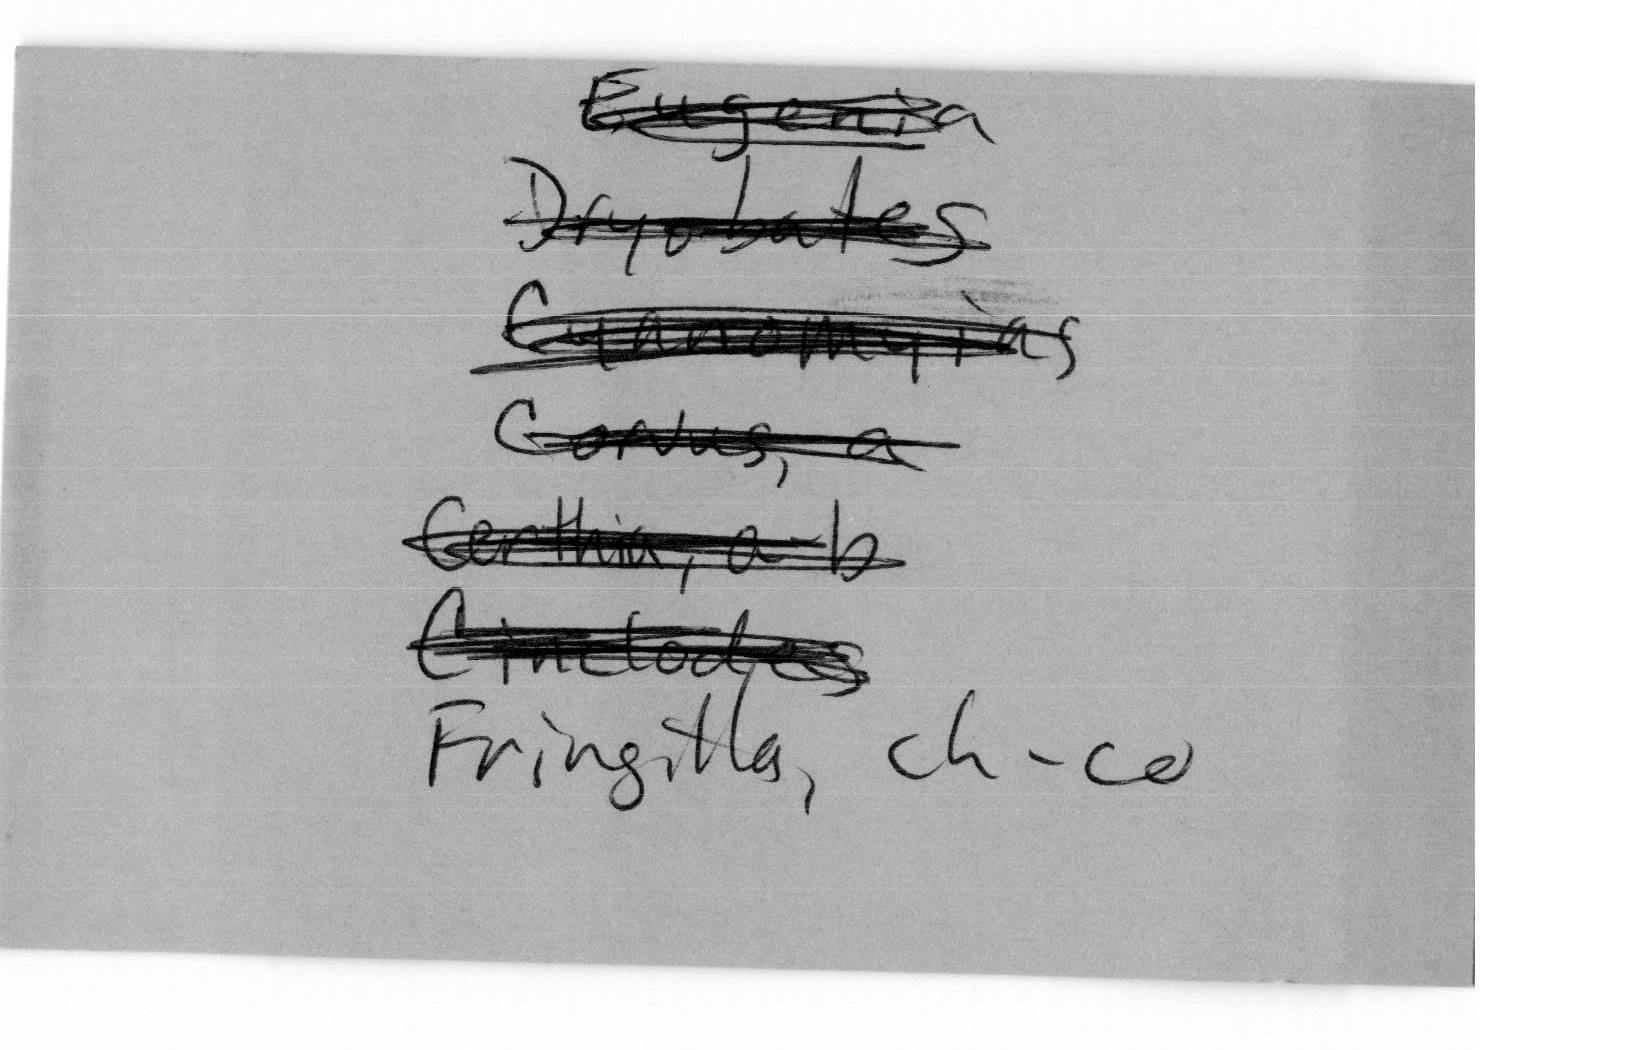 Eugenia
Dryobates
Cyanomyias
Corvus, a
Certhia, a-b
Cinclodes
Fringilla, ch-co